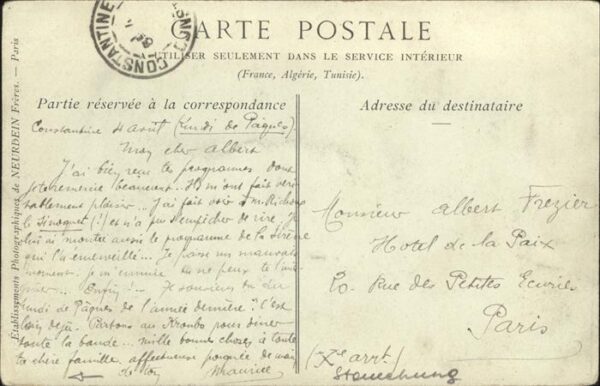 CARTE POSTALE
UTILISER SEULEMENT DANS LE SERVICE INTÉRIEUR
(France, Algérie, Tunisie).
CONSTANTINE
CONSTANTINE
Etablissements Photographiques de NEURDEIN Frères. — Paris
Partie réservée à la correspondance
Constantine 4 Avril (Lundi de Pâques)
Mon cher Albert
J'ai bien reçu tes programmes dont
je te remercie beaucoup. Ils m'ont fait véri
tablement plaisir... J'ai fait voir à Mr Richoux
le (!) et n'a pu s'empêcher de rire. Je
lui ai montré aussi le programme de la Sirène
qui l'a émerveillé... Je passe un mauvais
moment. Je m'ennuie tu ne peux te l'ima
giner... Enfin!... Te souviens tu du
lundi de Pâques de l'année dernière? C'est
loin déjà. Partons au pour dîner
toute la bande... mille bonnes choses à toute
ta chère famille. affectueuse poignée de main
de ton Maurice
Adresse du destinataire
Monsieur Albert Frezier
Hotel de la Paix
20. Rue des Petites Ecuries
Paris
(Xe arrt.)